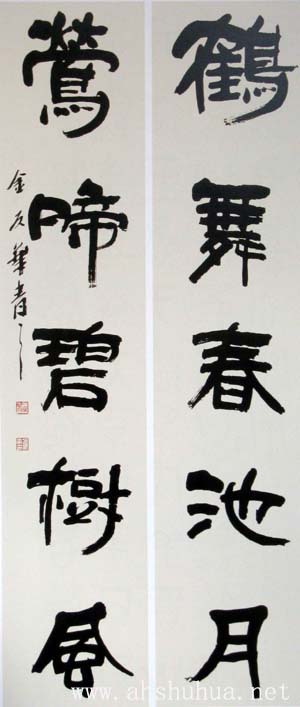 鶴舞春池月
鶯啼碧樹風
金友華書
www.ahshuhua.net